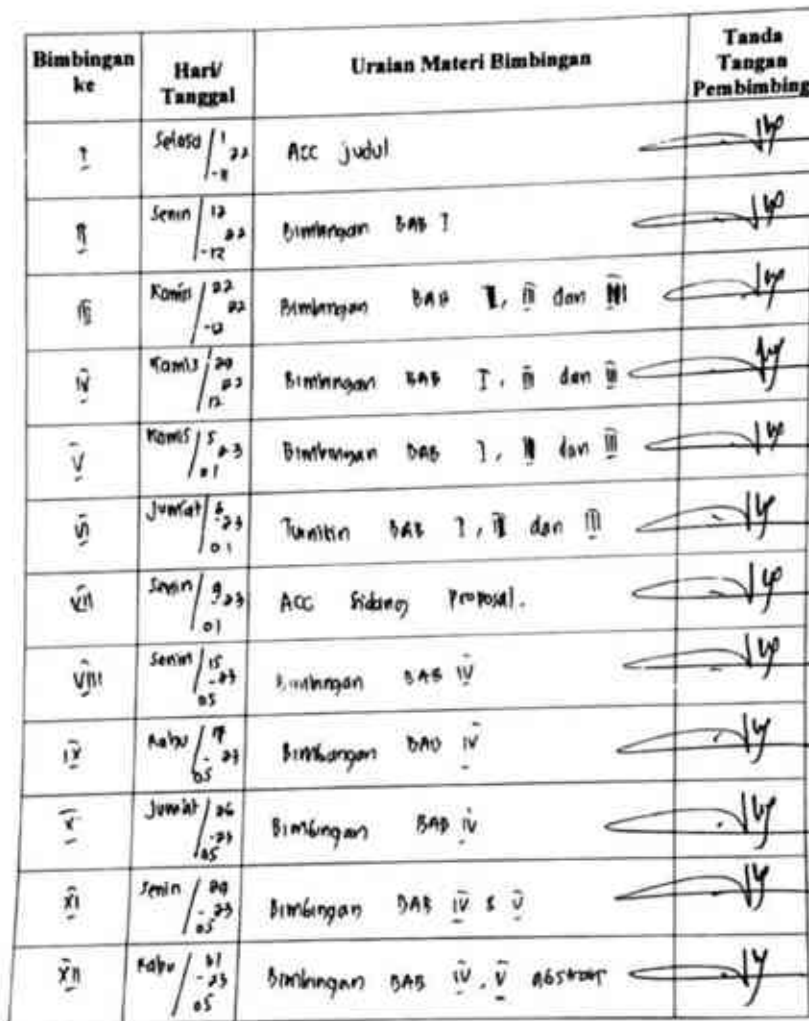 Bimbingan ke | Hari/ Tanggal | Uraian Materi Bimbingan | Tanda Tangan Pembimbing
I | Selasa / 1 -11 22 | Acc judul
II | Senin / 12 -12 22 | Bimbingan BAB I
III | Kamis / 22 -12 22 | Bimbingan BAB I, II dan III
IV | Kamis / 29 12 22 | Bimbingan BAB I, II dan III
V | Kamis / 5 01 23 | Bimbingan BAB I, II dan III
VI | Jum'at / 6 01 23 | Turnitin BAB I, II dan III
VII | Senin / 9 01 23 | ACC Sidang Proposal.
VIII | Senin / 15 -05 23 | Bimbingan BAB IV
IX | Rabu / 05 - 23 | Bimbingan BAB IV
X | Jum'at / 26 -05 23 | Bimbingan BAB IV
XI | Senin / 29 -05 23 | Bimbingan BAB IV & V
XII | Rabu / 31 -05 23 | Bimbingan BAB IV, V abstrak